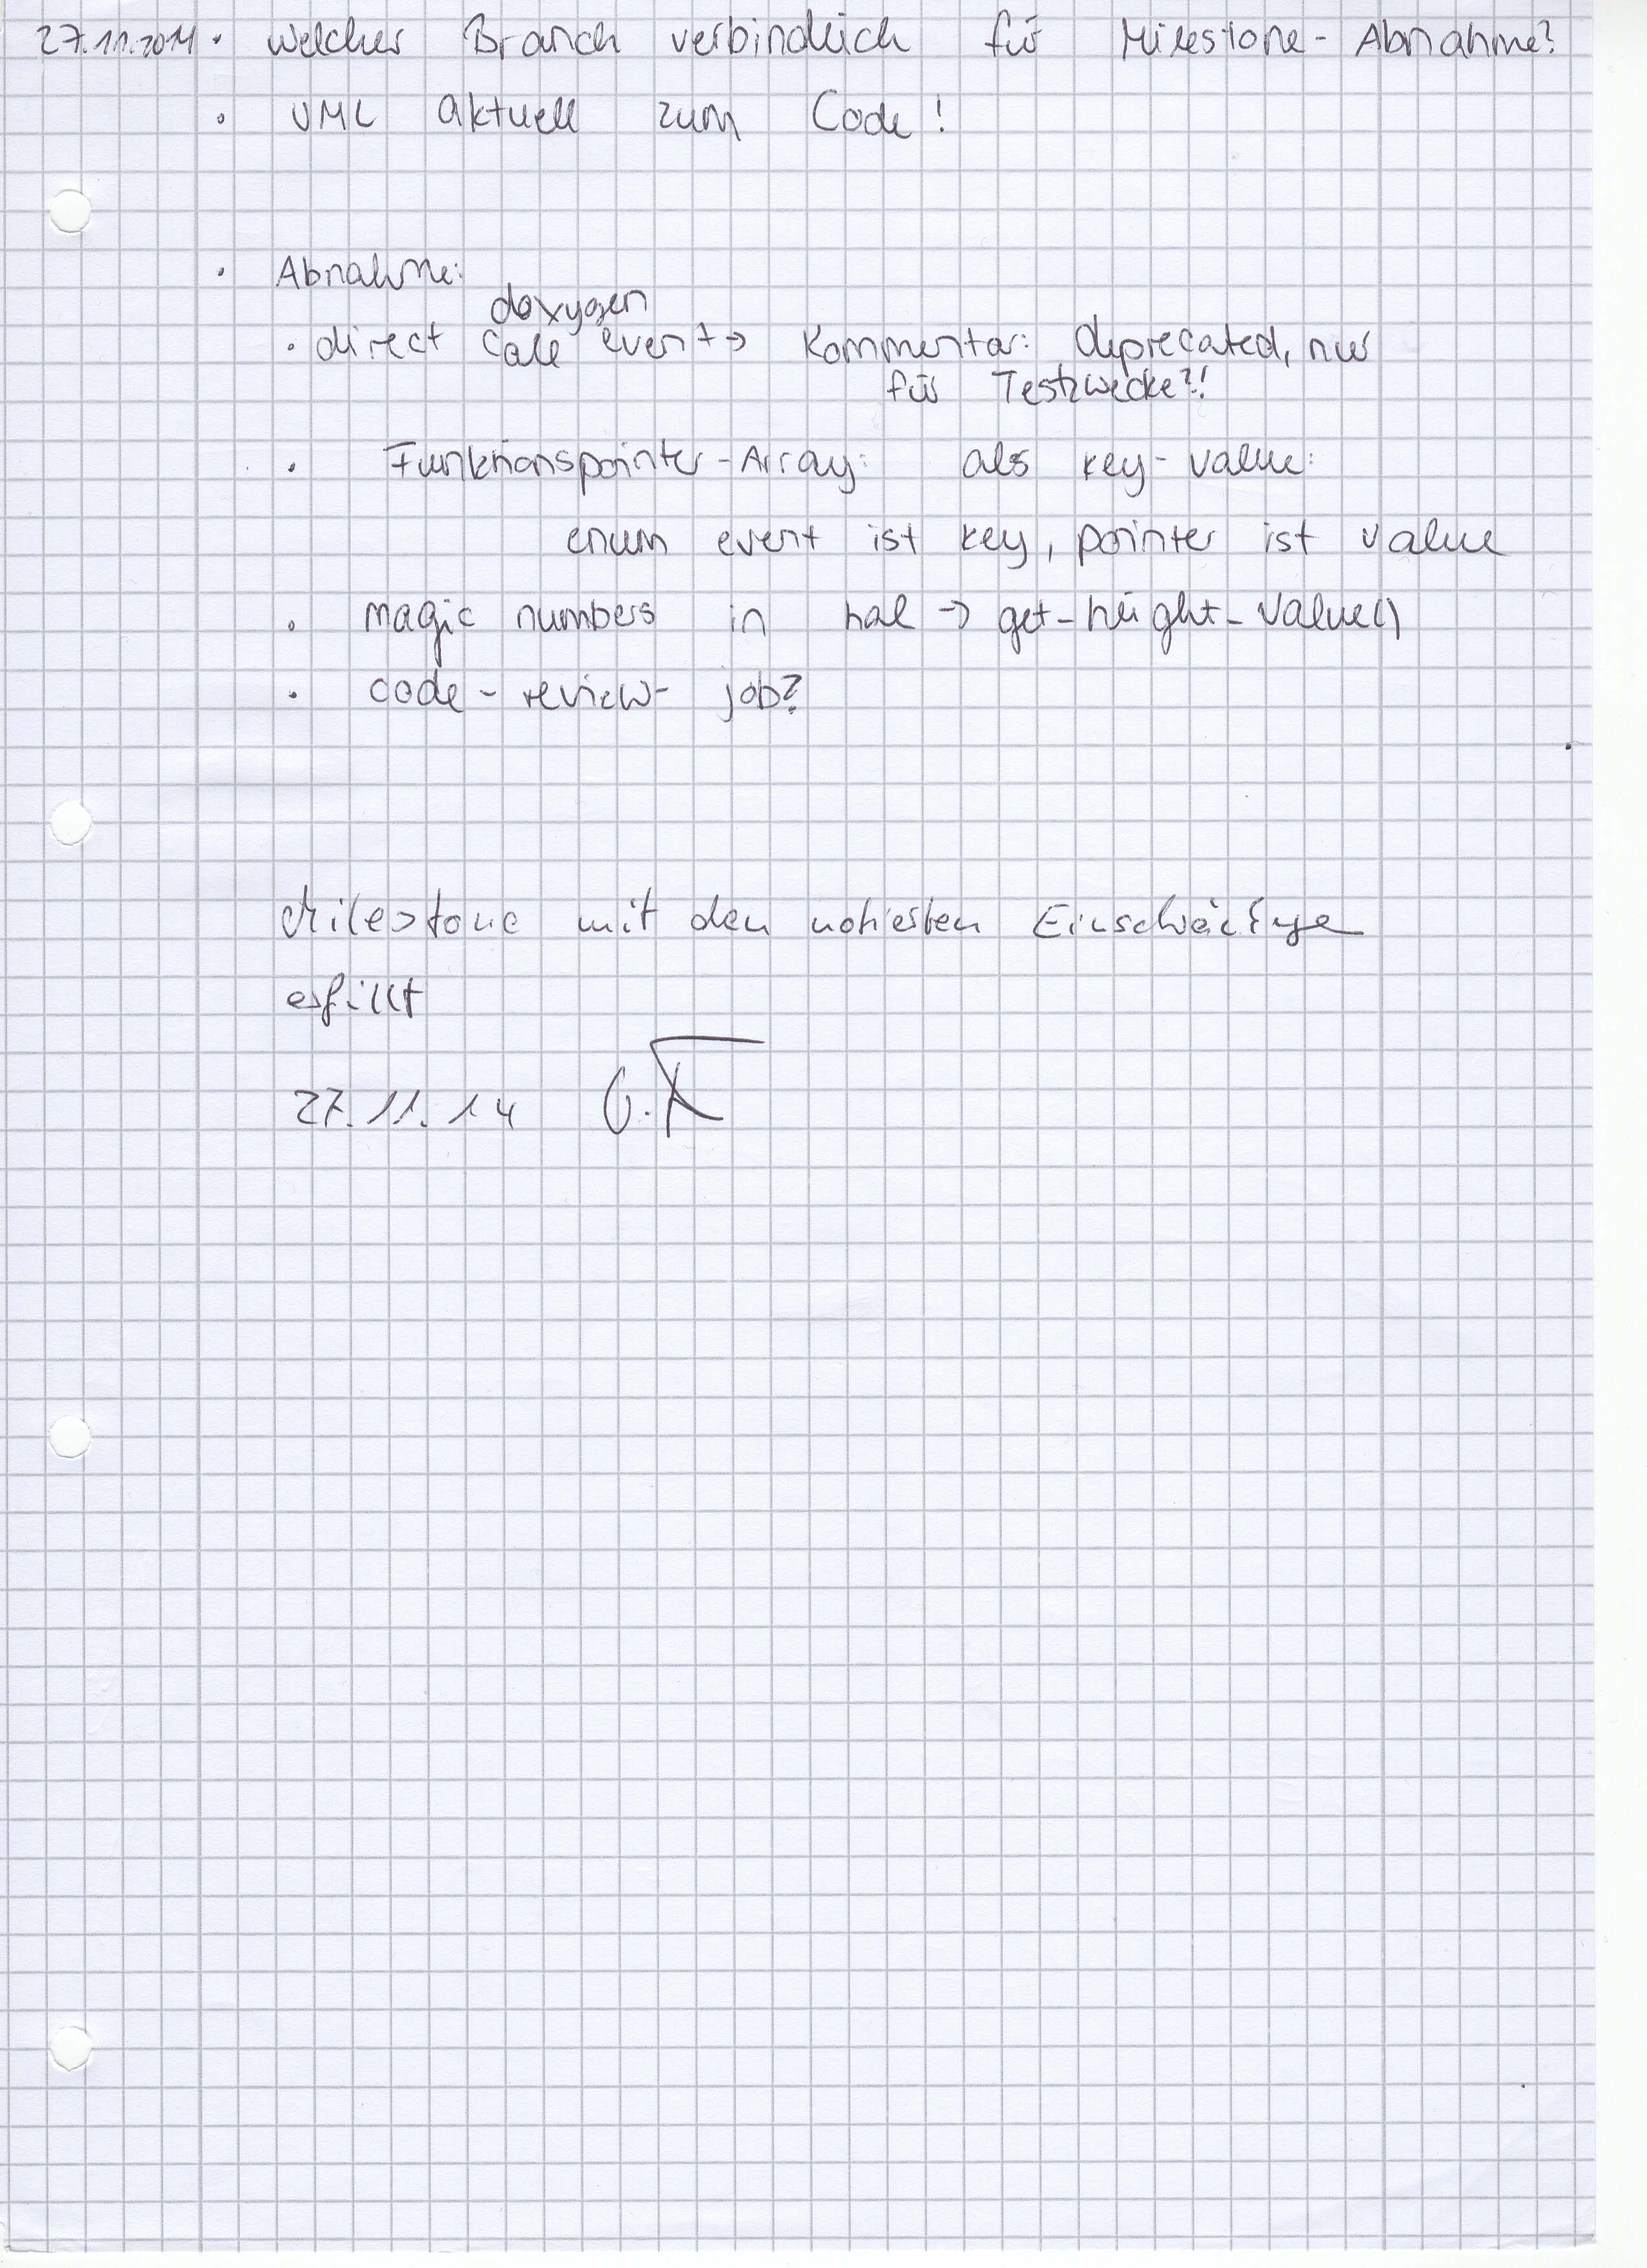 27.11.2014 • Welcher Branch verbindlich für Milestone- Abnahme?
• UML aktuell zum Code!
• Abnahme:
doxygen
• direct call event → Kommentar: deprecated, nur
für Testzwecke?!
• Funktionspointer-Array: als key-value:
enum event ist key, pointer ist value
• magic numbers in hal → get_height_value()
• code-review- job?
Milestone mit den notierten
erfüllt
27.11.14